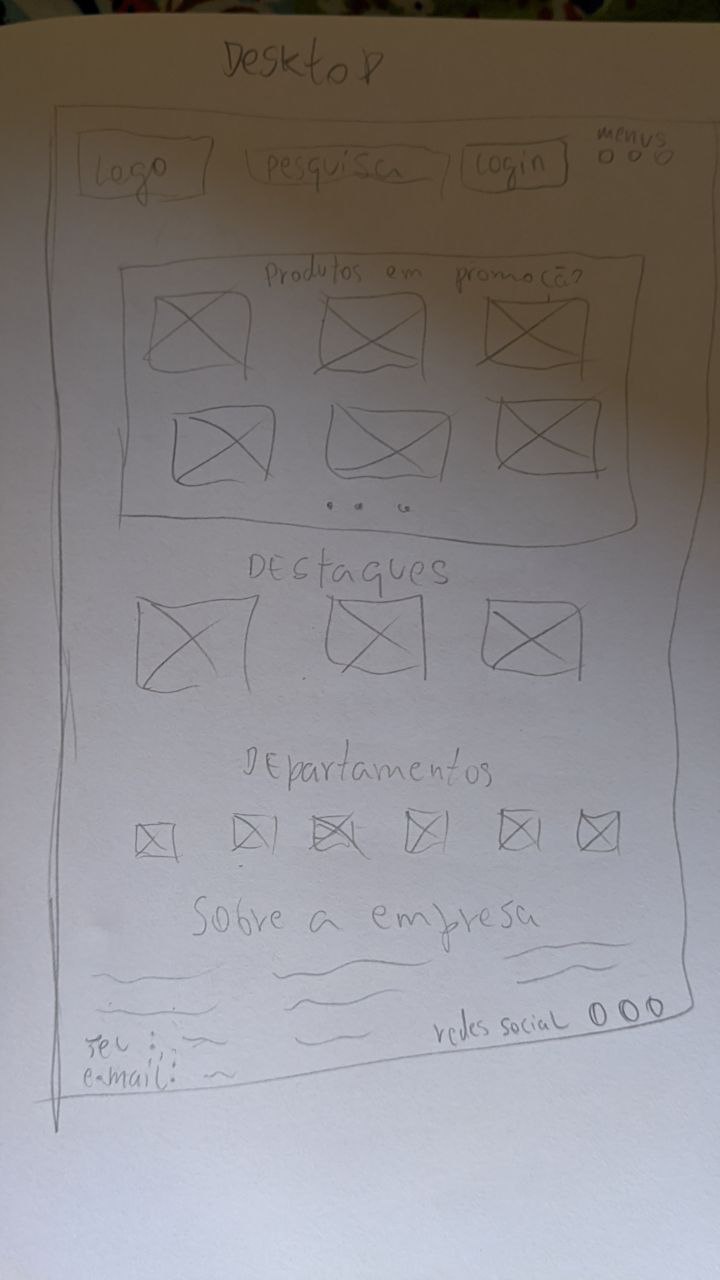 Desktop
Logo pesquisa Login menus
Produtos em promoção
DEstaques
DEpartamentos
Sobre a empresa
redes social
Tel :
e-mail: